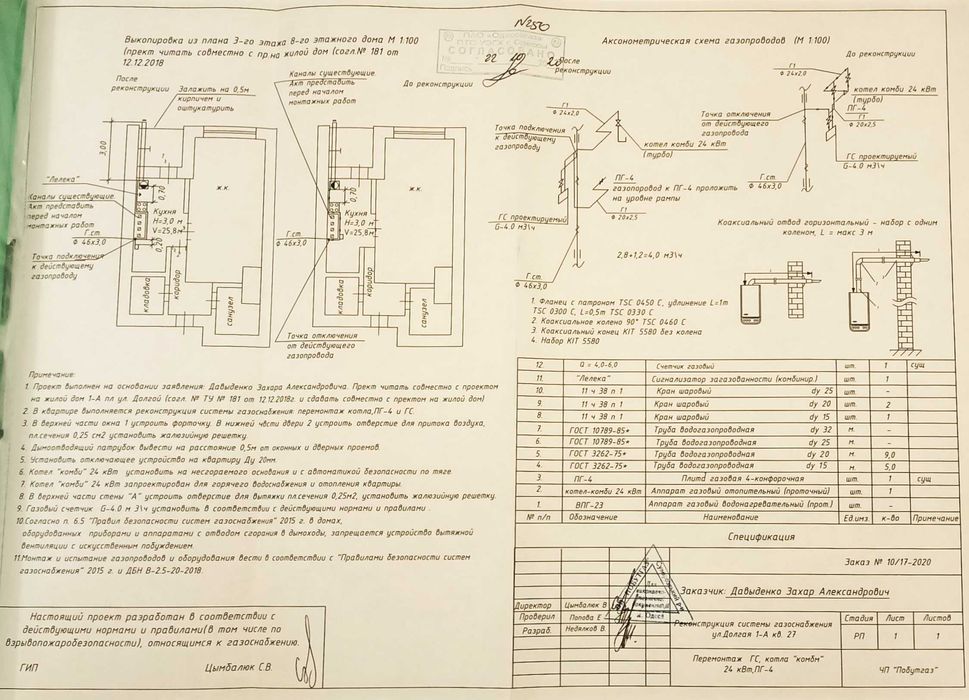 N250
Выкопировка из плана 3-го этажа 8-го этажного дома М 1:100
(прект читать совместно с пр.на жилой дом (согл.№ 181 от
12.12.2018
СОГЛАСОВАНО
22 10 20
Аксонометрическая схема газопроводов (М 1:100)
После
реконструкции
Заложить на 0,5м
кирпичем и
оштукатурить
Каналы существующие.
Акт представить
перед началом
монтажных работ
До реконструкции
3,00
"Лелека"
Каналы существующие.
Акт представить
перед началом
монтажных работ
Г.ст
Ф 46х3,0
Точка подключения
к действующему
газопроводу
0,70
Кухня
H=3,0 м
V=25,8м³
0,20
ж.к.
кладовка
коридор
санузел
0,70
Кухня
H=3,0 м
V=25,8м³
Г.ст
Ф 46х3,0
ж.к.
кладовка
коридор
санузел
Точка отключения
от действующего
газопровода
После
реконструкции
Г1
Ф 24х2,0
Точка подключения
к действующему
газопроводу
котел комби 24 кВт
(турбо)
ПГ-4
газопоровод к ПГ-4 проложить
на уровне рампы
Г1
Ф 20х2,5
ГС проектируемый
G-4.0 м3\ч
2,8+1,2=4,0 м3\ч
Г.ст.
Ф 46х3,0
До реконструкции
Г1
Ф 24х2,0
котел комби 24 кВт
(турбо)
ПГ-4
Г1
Ф 20х2,5
Точка отключения
от действующего
газопровода
ГС проектируемый
G-4.0 м3\ч
Г.ст
Ф 46х3,0
Коаксиальный отвод горизонтальный - набор с одним
коленом, L = макс 3 м
1. Фланец с патроном TSC 0450 C, удлинение L=1m
TSC 0300 C, L=0,5m TSC 0330 C
2. Коаксиальное колено 90° TSC 0460 C
3. Коаксиальный конец KIT 5580 без колена
4. Набор KIT 5580
Примечание:
1. Проект выполнен на основании заявления: Давыденко Захара Александровича. Прект читать совместно с проектом
на жилой дом 1-А пл ул. Долгой (согл. № ТУ № 181 от 12.12.2018г. и сдавать совместно с пректом на жилой дом)
2. В квартире выполняется реконструкция системы газоснабжения: перемонтаж котла,ПГ-4 и ГС.
3. В верхней части окна 1 устроить форточку. В нижней чсти двери 2 устроить отверстие для притока воздуха,
пл.сечения 0,25 см2 установить жалюзийную решетку.
4. Дымоотводящий патрубок вывести на расстояние 0,5м от оконных и дверных проемов.
5. Установить отключающее устройство на квартиру Ду 20мм.
6. Котел "комби" 24 кВт установить на несгараемого основания и с автоматикой безопасности по тяге.
7. Котел "комби" 24 кВт запроектирован для горячего водоснабжения и отопления квартиры.
8. В верхней части стены "А" устроить отверстие для вытяжки пл.сечения 0,25м2, установить жалюзийную решетку.
9. Газовый счетчик G-4.0 м 3\ч установить в соответствии с действующими нормами и правилами .
10.Согласно п. 6.5 "Правил безопасности систем газоснабжения" 2015 г. в домах,
оборудованных приборами и аппаратами с отводом сгорания в дымоходы, запрещается устройство вытяжной
вентиляции с искусственным побуждением.
11.Монтаж и испытание газопроводов и оборудования вести в соответствии с "Правилами безопасности систем
газоснабжения" 2015 г. и ДБН В-2.5-20-2018.
Настоящий проект разработан в соответствии с
действующими нормами и правилами(в том числе по
взрывопожаробезопасности), относящимся к газоснабжению.
ГИП Цымбалюк С.В.
12. Q = 4,0-6,0 Счетчик газовый шт. 1 сущ
11. "Лелека" Сигнализатор загазованности (комбинир.) шт. 1
10. 11 ч 38 п 1 Кран шаровый dy 25 шт. -
9. 11 ч 38 п 1 Кран шаровый dy 20 шт. 2
8. 11 ч 38 п 1 Кран шаровый dy 15 шт. 1
7. ГОСТ 10789-85* Труба водогазопроводная dy 32 м. -
6. ГОСТ 10789-85* Труба водогазопроводная dy 25 м. -
5. ГОСТ 3262-75* Труба водогазопроводная dy 20 м. 9,0
4. ГОСТ 3262-75* Труба водогазопроводная dy 15 м. 5,0
3. ПГ-4 Плита газовая 4-конфорочная шт. 1 сущ
2. котел-комби 24 кВт Аппарат газовый отопительный (проточный) шт. 1
1. ВПГ-23 Аппарат газовый водонагревательный (прот.) шт. -
№ п/п Обозначение Наименование Ед.измз. к-во Примечание
Спецификация
Заказ № 10/17-2020
Заказчик: Давыденко Захар Александрович
Директор Цымбалюк В
Проверил Попова Е
Разраб. Недялков В.
Реконструкция системы газоснабжения
ул.Долгая 1-А кв. 27
Стадия Лист Листов
РП 1 1
Перемонтаж ГС, котла "комбм"
24 кВт,ПГ-4
ЧП "Побутгаз"